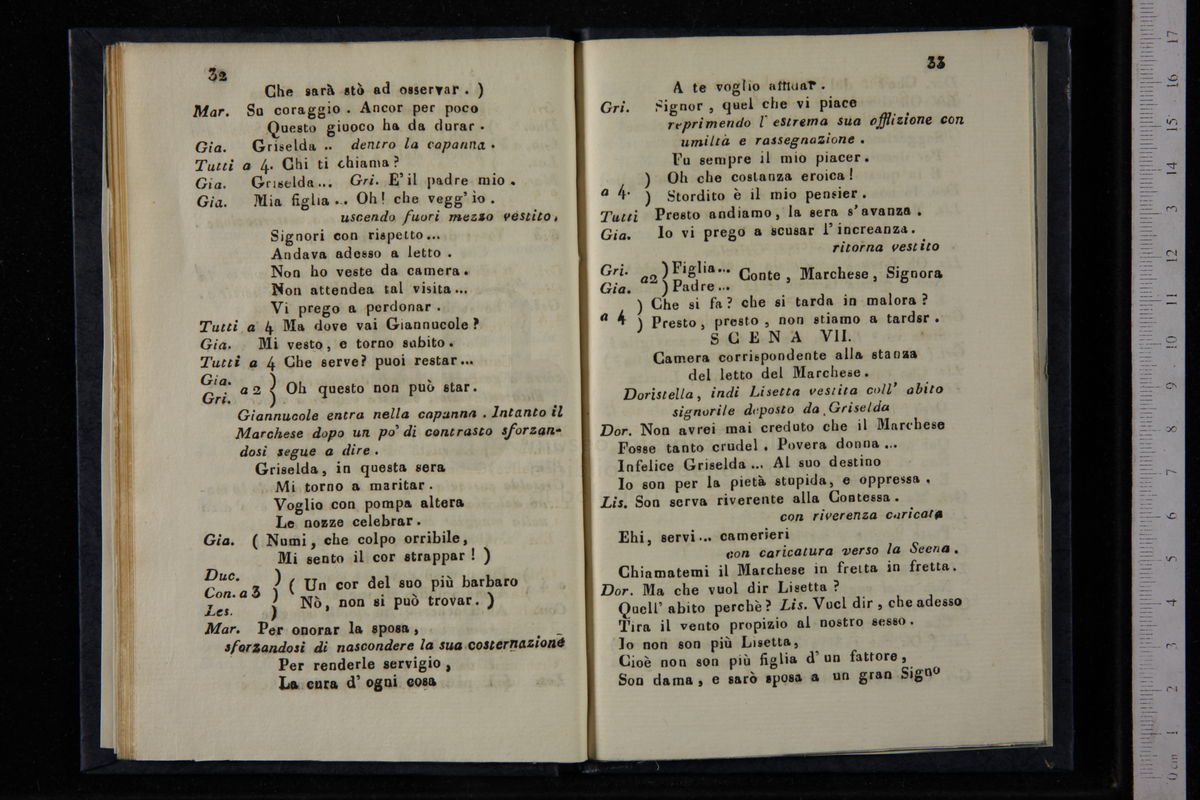 32
Che sarà stò ad osservar . )
Mar. Su coraggio . Ancor per poco
Questo giuoco ha da durar .
Gia. Griselda .. dentro la capanna .
Tutti a 4. Chi ti chiama ?
Gia. Griselda ... Gri. E' il padre mio .
Gia. Mia figlia ... Oh ! che vegg' io .
uscendo fuori mezzo vestito ,
Signori con rispetto ...
Andava adesso a letto .
Non ho veste da camera .
Non attendea tal visita ...
Vi prego a perdonar .
Tutti a 4 Ma dove vai Giannucole ?
Gia. Mi vesto , e torno subito .
Tutti a 4 Che serve ? puoi restar ...
Gia.
Gri. a 2 ) Oh questo non può star .
Giannucole entra nella capanna . Intanto il
Marchese dopo un po' di contrasto sforzan-
dosi segue a dire .
Griselda , in questa sera
Mi torno a maritar .
Voglio con pompa altera
Le nozze celebrar .
Gia. ( Numi , che colpo orribile ,
Mi sento il cor strappar ! )
Duc.
Con. a 3 ) ( Un cor del suo più barbaro
Les. ) Nò , non si può trovar . )
Mar. Per onorar la sposa ,
sforzandosi di nascondere la sua costernazione
Per renderle servigio ,
La cura d' ogni cosa
33
A te voglio affidar .
Gri. Signor , quel che vi piace
reprimendo l' estrema sua offlizione con
umiltà e rassegnazione .
Fu sempre il mio piacer .
a 4. ) Oh che costanza eroica !
) Stordito è il mio pensier .
Tutti Presto andiamo , la sera s' avanza .
Gia. Io vi prego a scusar l' increanza .
ritorna vestito
Gri. a2 ) Figlia ... Conte , Marchese , Signora
Gia. ) Padre ...
a 4 ) Che si fa ? che si tarda in malora ?
) Presto , presto , non stiamo a tardsr .
SCENA VII.
Camera corrispondente alla stanza
del letto del Marchese .
Doristella , indi Lisetta vestita coll' abito
signorile deposto da Griselda
Dor. Non avrei mai creduto che il Marchese
Fosse tanto crudel . Povera donna ...
Infelice Griselda ... Al suo destino
Io son per la pietà stupida , e oppressa .
Lis. Son serva riverente alla Contessa .
con riverenza caricata
Ehi , servi ... camerieri
con caricatura verso la Seena .
Chiamatemi il Marchese in fretta in fretta .
Dor. Ma che vuol dir Lisetta ?
Quell' abito perchè ? Lis. Vuol dir , che adesso
Tira il vento propizio al nostro sesso .
Io non son più Lisetta ,
Cioè non son più figlia d' un fattore ,
Son dama , e sarò sposa a un gran Signo